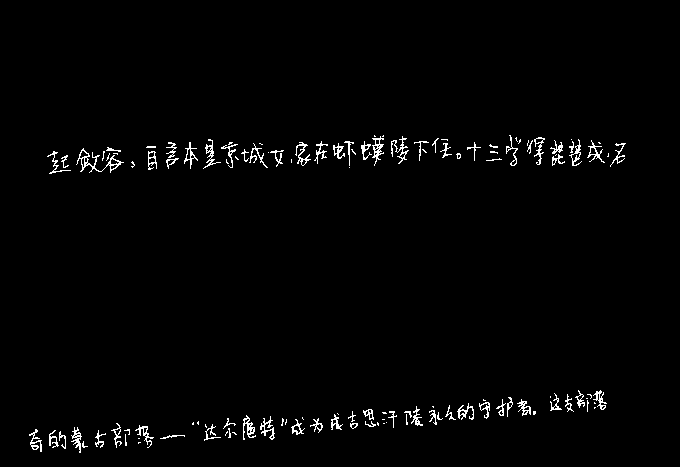 起敛容。自言本是京城女,家在虾蟆陵下住。十三学得琵琶成,名
奇的蒙古部落——“达尔扈特”成为成吉思汗陵永久的守护者。这支部落